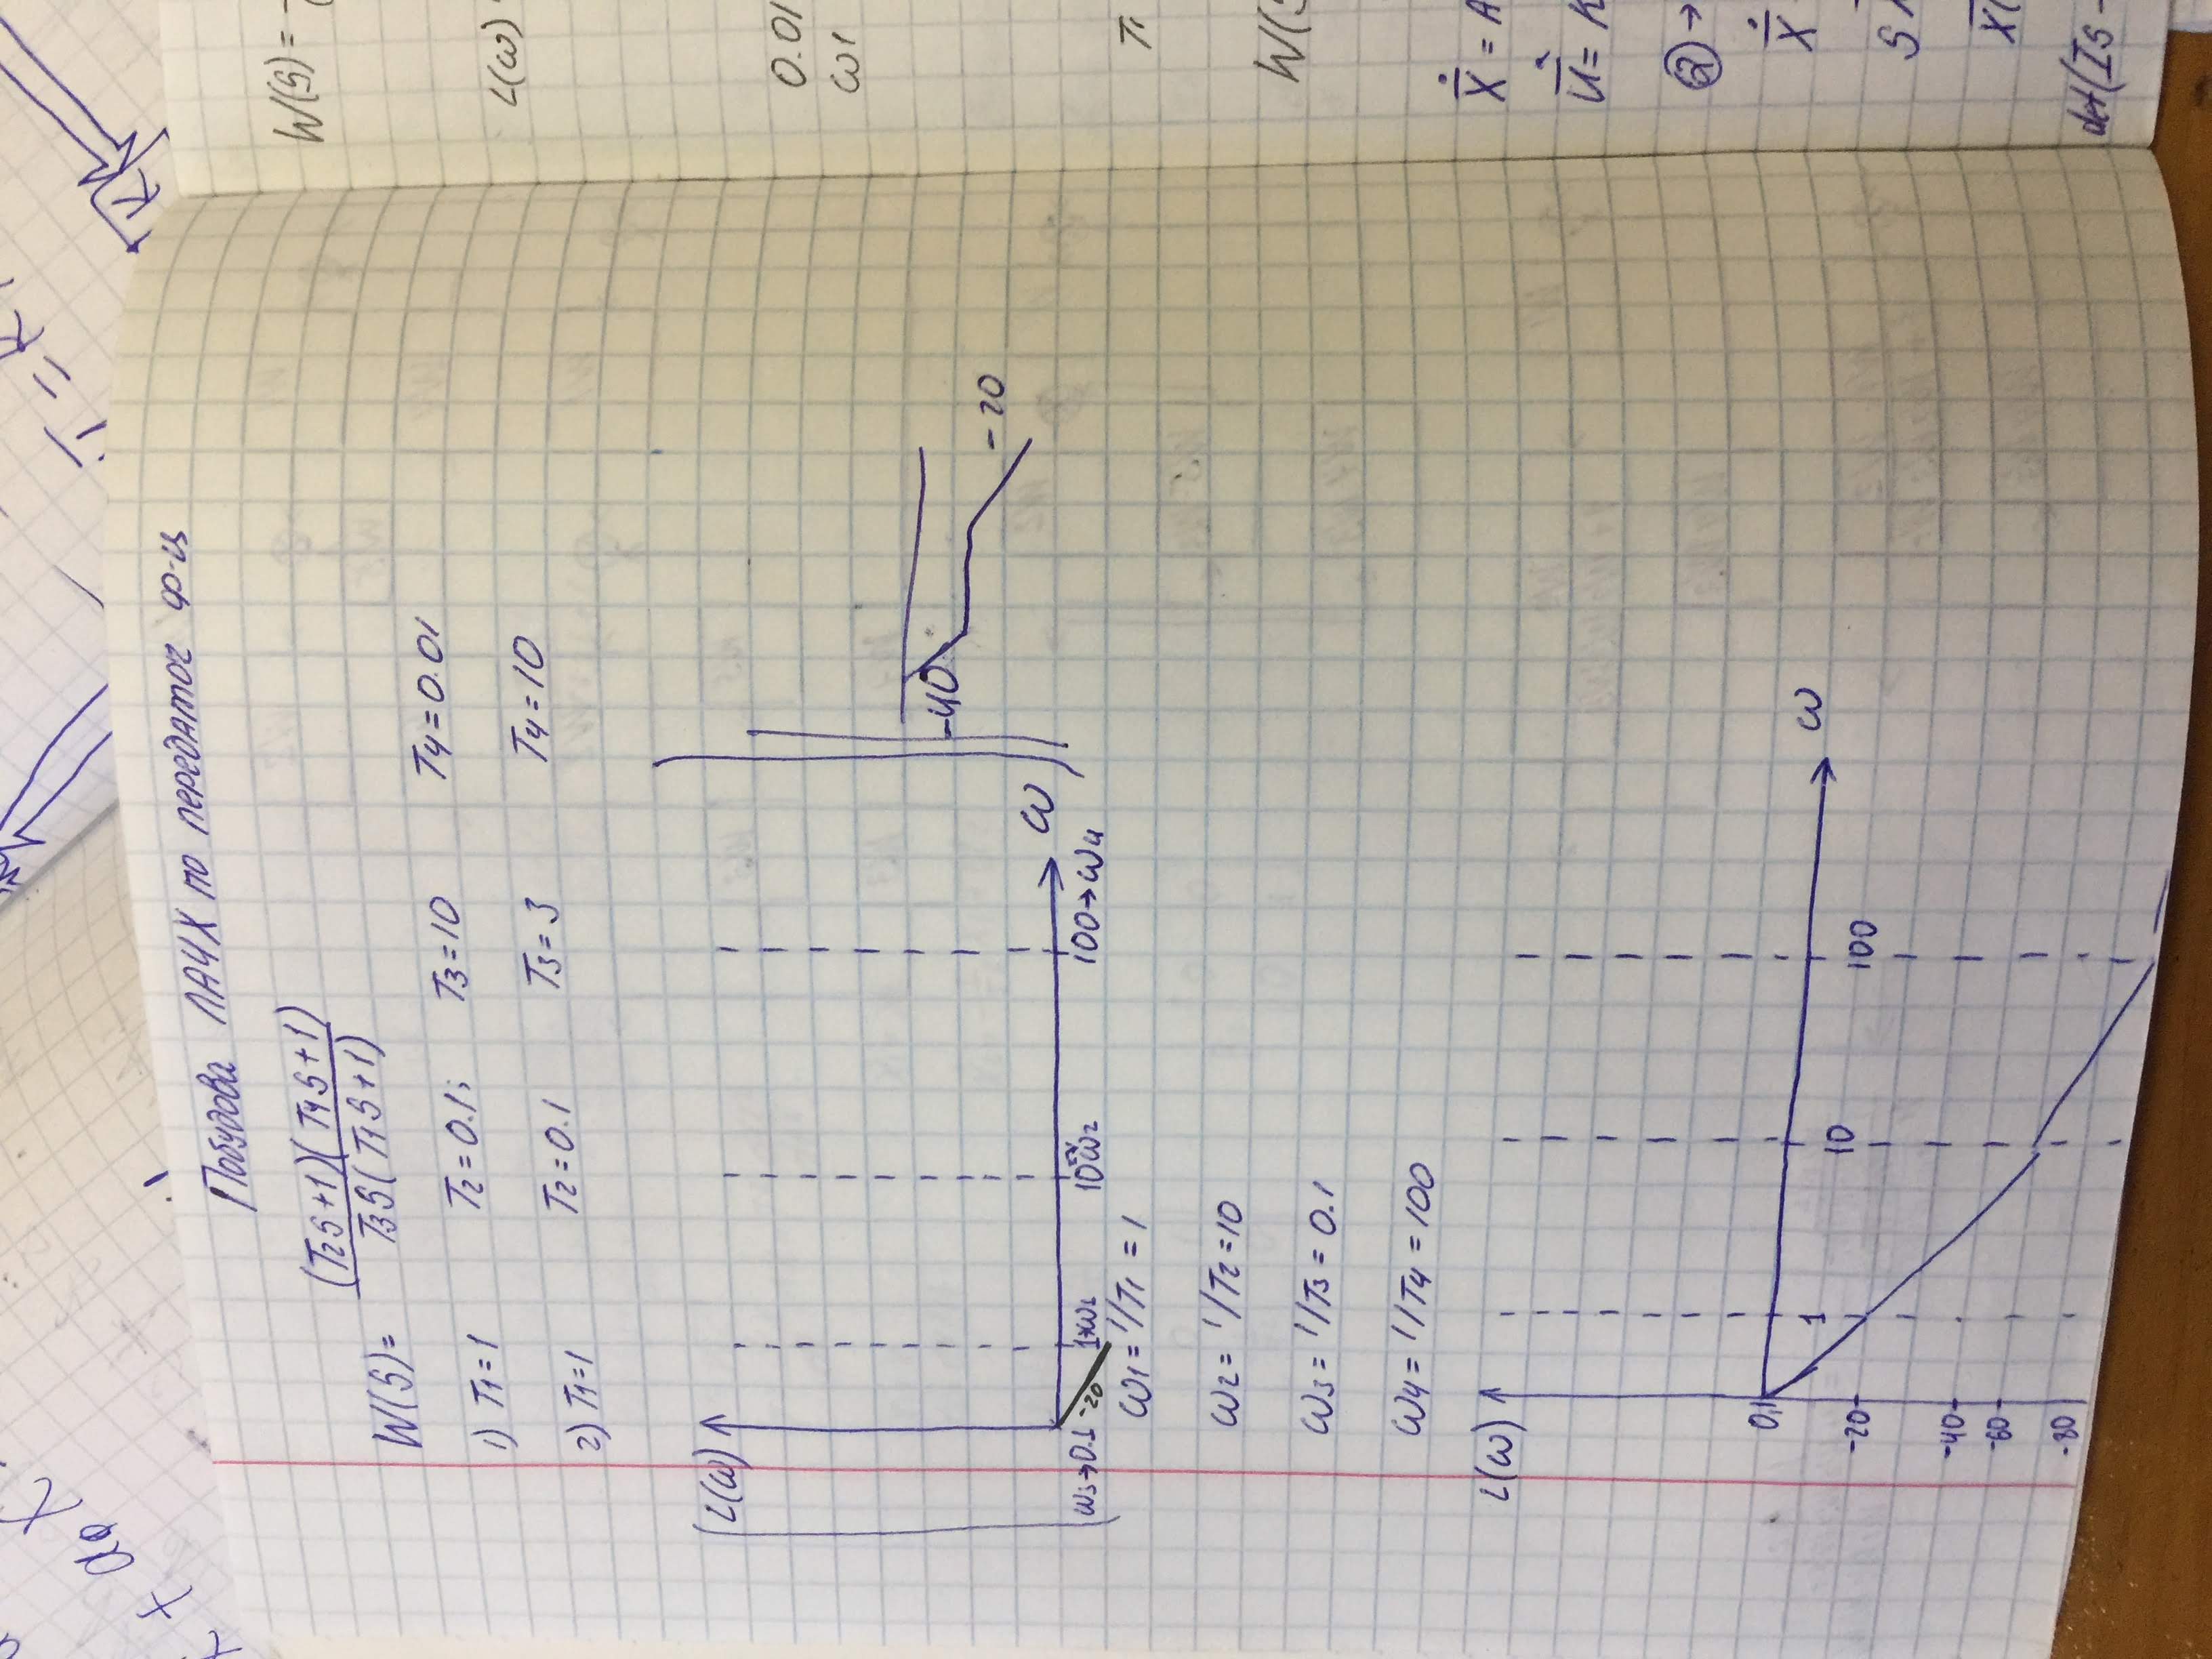 Ẋ + α₀ X
U = K
K
Побудова ЛАЧХ по передаточ ф-ц
W(S) = (T2S+1)(T4S+1) / T3S(T1S+1)
1) T1=1 T2=0.1; T3=10 T4=0.01
2) T1=1 T2=0.1 T3=3 T4=10
L(ω)
-40
-20
ω
ω3→0.1 -20 1→ω1 10 ω2 100→ω4
ω1= 1/T1 = 1
ω2= 1/T2 =10
ω3= 1/T3 = 0.1
ω4= 1/T4 =100
L(ω)
0,1
ω
1 10 100
-20
-40
-60
-80
W(S)=
L(ω)
0.01
ω1
T1
W(S
Ẋ = A
U = K
② →
Ẋ
S X
X(
det(Is -